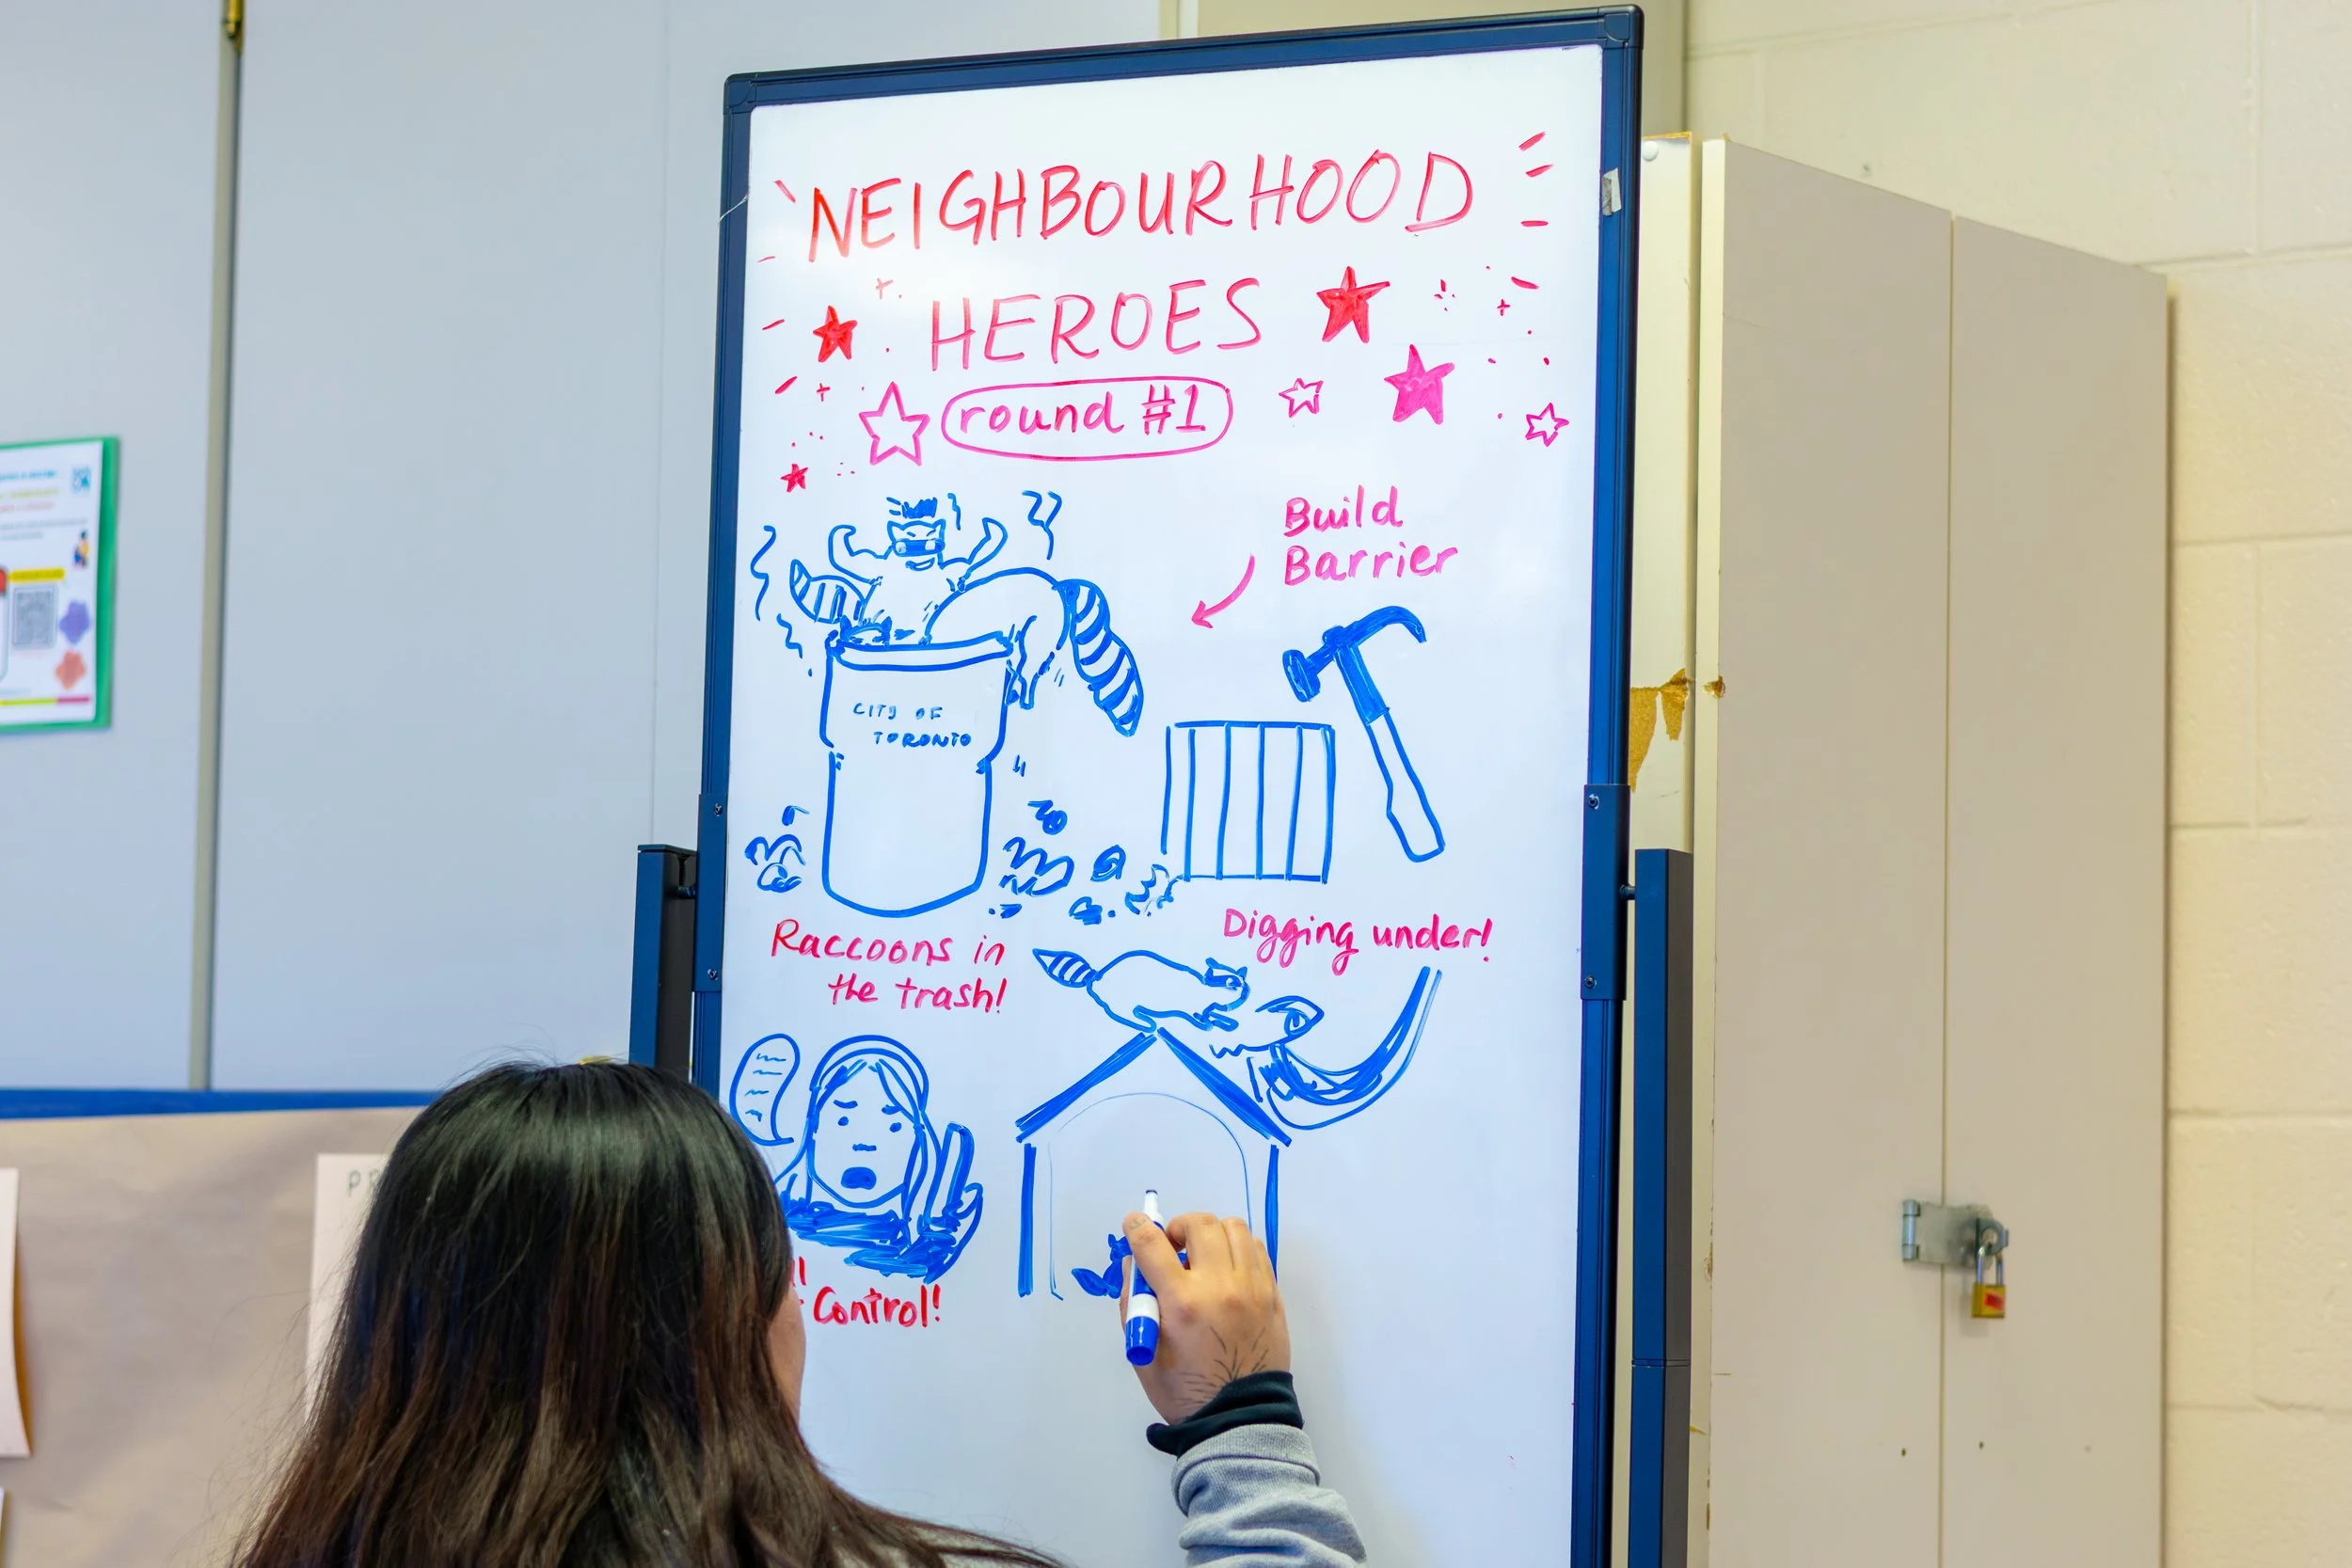 NEIGHBOURHOOD
HEROES
round #1
Build
Barrier
CITY OF
TORONTO
Raccoons in
the trash!
Digging under!
Control!